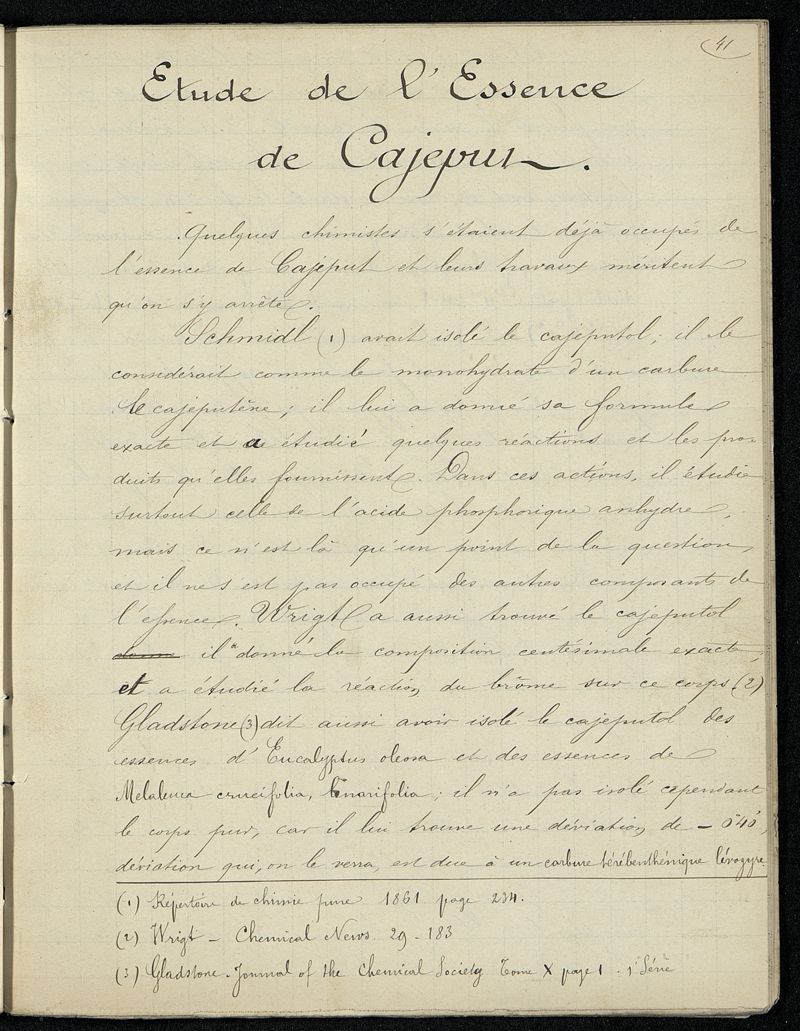 41
Etude de l'Essence
de Cajeput.
Quelques chimistes s'étaient déjà occupés de
l'essence de Cajéput et leurs travaux méritent
qu'on s'y arrête.
Schmidl (1) avait isolé le cajeputol; il le
considérait comme le monohydrate d'un carbure
le cajeputène; il lui a donné sa formule
exacte et a étudié quelques réactions et les pro-
duits qu'elles fournissent. Dans ces actions, il étudie
surtout celle de l'acide phosphorique anhydre,
mais ce n'est là qu'un point de la question,
et il ne s'est pas occupé des autres composants de
l'essence. Wrigt a aussi trouvé le cajeputol
il a donné la composition centésimale exacte,
et a étudié la réaction du brôme sur ce corps (2)
Gladstone (3) dit aussi avoir isolé le cajeputol des
essences d'Eucalyptus oleosa et des essences de
Melaleuca crucifolia, linarifolia; il n'a pas isolé cependant
le corps pur, car il lui trouve une déviation de
déviation qui, on le verra, est due à un carbure térébenthénique lévogyre.
(1) Répertoire de chimie pure 1861 page 234.
(2) Wrigt - Chemical News. 29-183
(3) Gladstone - Journal of the Chemical Society Tome X page 1. Série